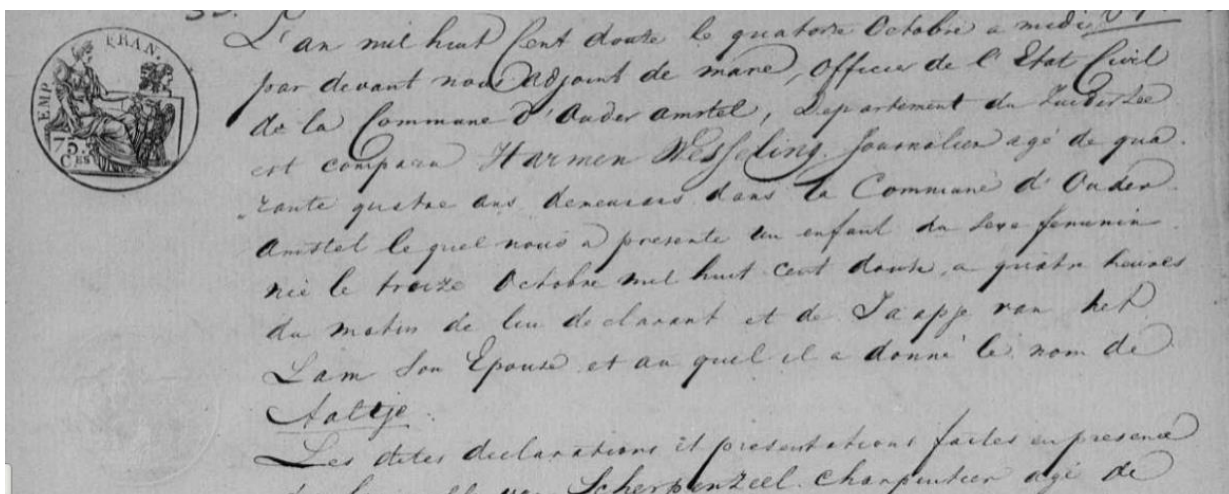 EMP. FRAN.
75.
C.ES
L'an mil huit Cent douze le quatorze Octobre a midi
par devant nous adjoint de maire, Officier de l'Etat Civil
de la Commune d'Ouder amstel, Departement du Zuiderzee
est comparu Harmen Wesseling. Journalier agé de qua-
rante quatre ans demeurant dans la Commune d'Ouder
Amstel le quel nous a presenté un enfant du sexe feminin
née le treize Octobre mil huit cent douze, a quatre heures
du matin de lui declarant et de Jaapje van het
Lam Son Epouse et au quel il a donné le nom de
Aaltje.
Les dites declarations et presentations faites en presence
Scherpenzeel. Charpentier agé de